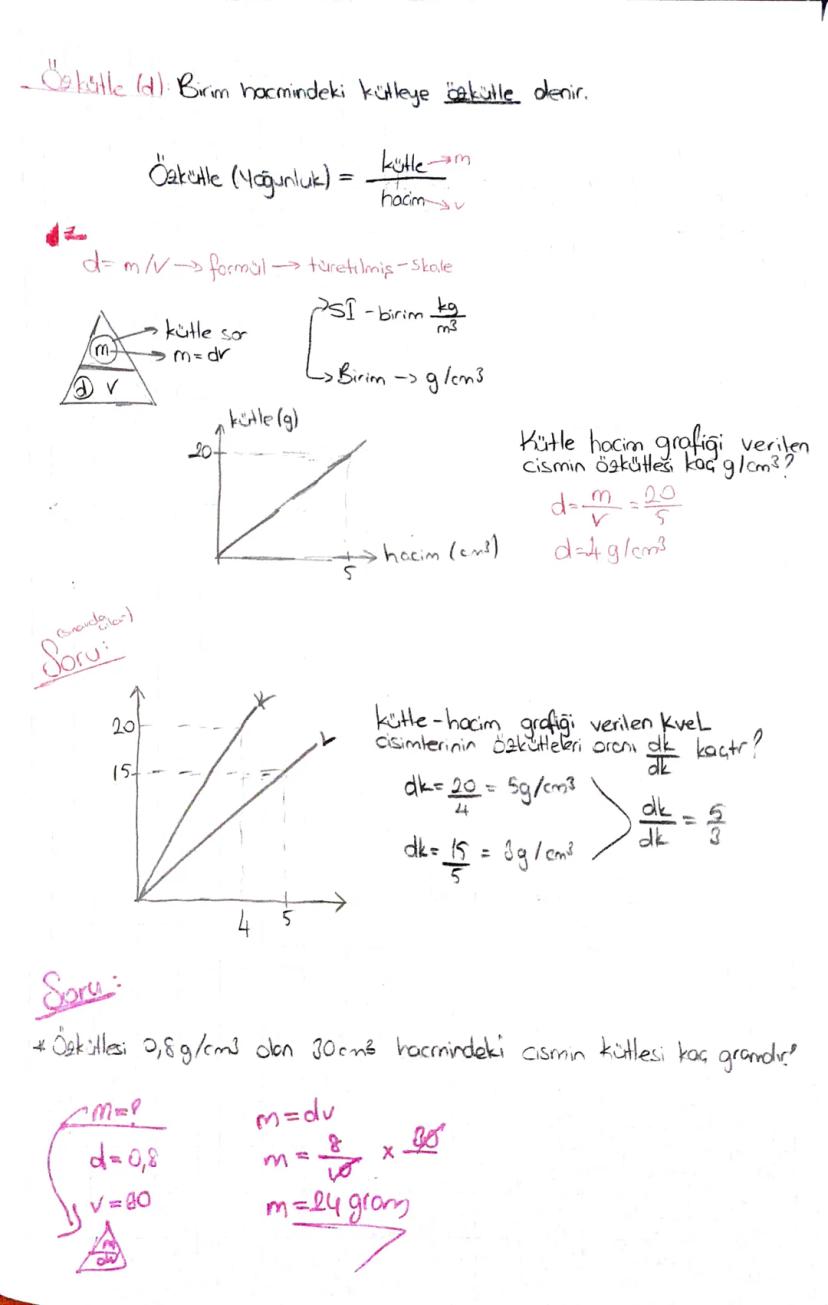 Özkütle (d): Birim hacmindeki kütleye özkütle denir.
Özkütle (Yoğunluk) = kütle → m
hacim → v
d = m/v → formül → türetilmiş - skale
m
d v
kütle sor
m = dv
SI - birim kg
m³
Birim → g/cm³
kütle (g)
20
5
hacim (cm³)
Kütle hacim grafiği verilen
cismin özkütlesi kaç g/cm³?
d = m/v = 20/5
d = 4 g/cm³
Soru:
20
15
K
L
4 5
kütle - hacim grafiği verilen K vel
cisimlerinin özkütleleri oranı dk/dk kaçtır?
dk = 20/4 = 5g/cm³
dk = 15/5 = 3g/cm³
dk/dk = 5/3
Soru:
* Özkütlesi 0,8 g/cm³ olan 30 cm³ hacmindeki cismin kütlesi kaç gramdır?
m = ?
d = 0,8
v = 30
m
dv
m = dv
m = 8/10 x 30
m = 24 gram